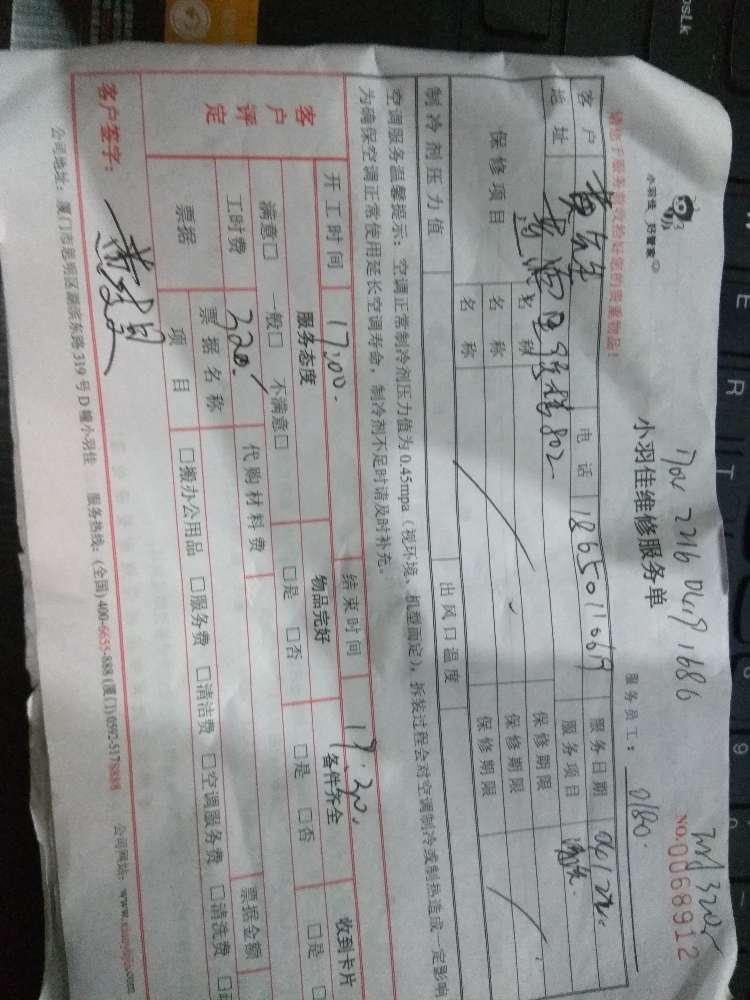 小羽佳 好管家
小羽佳维修服务单
NO.0068912
请您于服务前收捡好您的贵重物品!
服务员工: 0180.
客户 黄先生 电话 18650110619 服务日期
地址 802. 服务项目
保修项目 名称 保修期限
名称 保修期限
名称 保修期限
制冷剂压力值 出风口温度
空调服务温馨提示: 空调正常制冷剂压力值为0.45mpa (视环境、机型而定), 拆装过程会对空调制冷或制热造成一定影响
为确保空调正常使用延长空调寿命, 制冷剂不足时请及时补充。
开工时间 17:00. 结束时间 17:20.
客户评定 服务态度 物品完好 备件齐全 收到卡片
满意□ 一般□ 不满意□ □是 □否 □是 □否 □是
工时费 320. 代购材料费
票据 票据名称 票据金额
项目 □搬办公用品 □服务费 □清洁费 □空调服务费 □清洗费
客户签字:
公司地址: 厦门市思明区湖滨东路319号D幢小羽佳 服务热线: (全国) 400-6655-888 (厦门) 0592-5178888 公司网站: